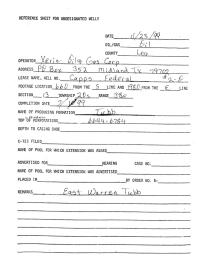 REFERENCE SHEET FOR UNDESIGNATED WELLS
DATE 11/23/99
OIL/GAS Oil
COUNTY Lea
OPERATOR Xeric Oil & Gas Corp
ADDRESS PO Box 352 Midland Tx 79702
LEASE NAME, WELL NO. Capps Federal #2-E
FOOTAGE LOCATION 660 FROM THE S LINE AND 1980 FROM THE E LINE
SECTION 13 TOWNSHIP 20s RANGE 38e
COMPLETION DATE
NAME OF PRODUCING FORMATION Tubb
TOP OF PERFORATIONS 6644-6784
DEPTH TO CASING SHOE
C-123 FILED
NAME OF POOL FOR WHICH EXTENSION WAS ASKED
ADVERTISED FOR HEARING CASE NO.
NAME OF POOL FOR WHICH EXTENSION WAS ADVERTISED
PLACED IN BY ORDER NO. R-
REMARKS East Warren Tubb